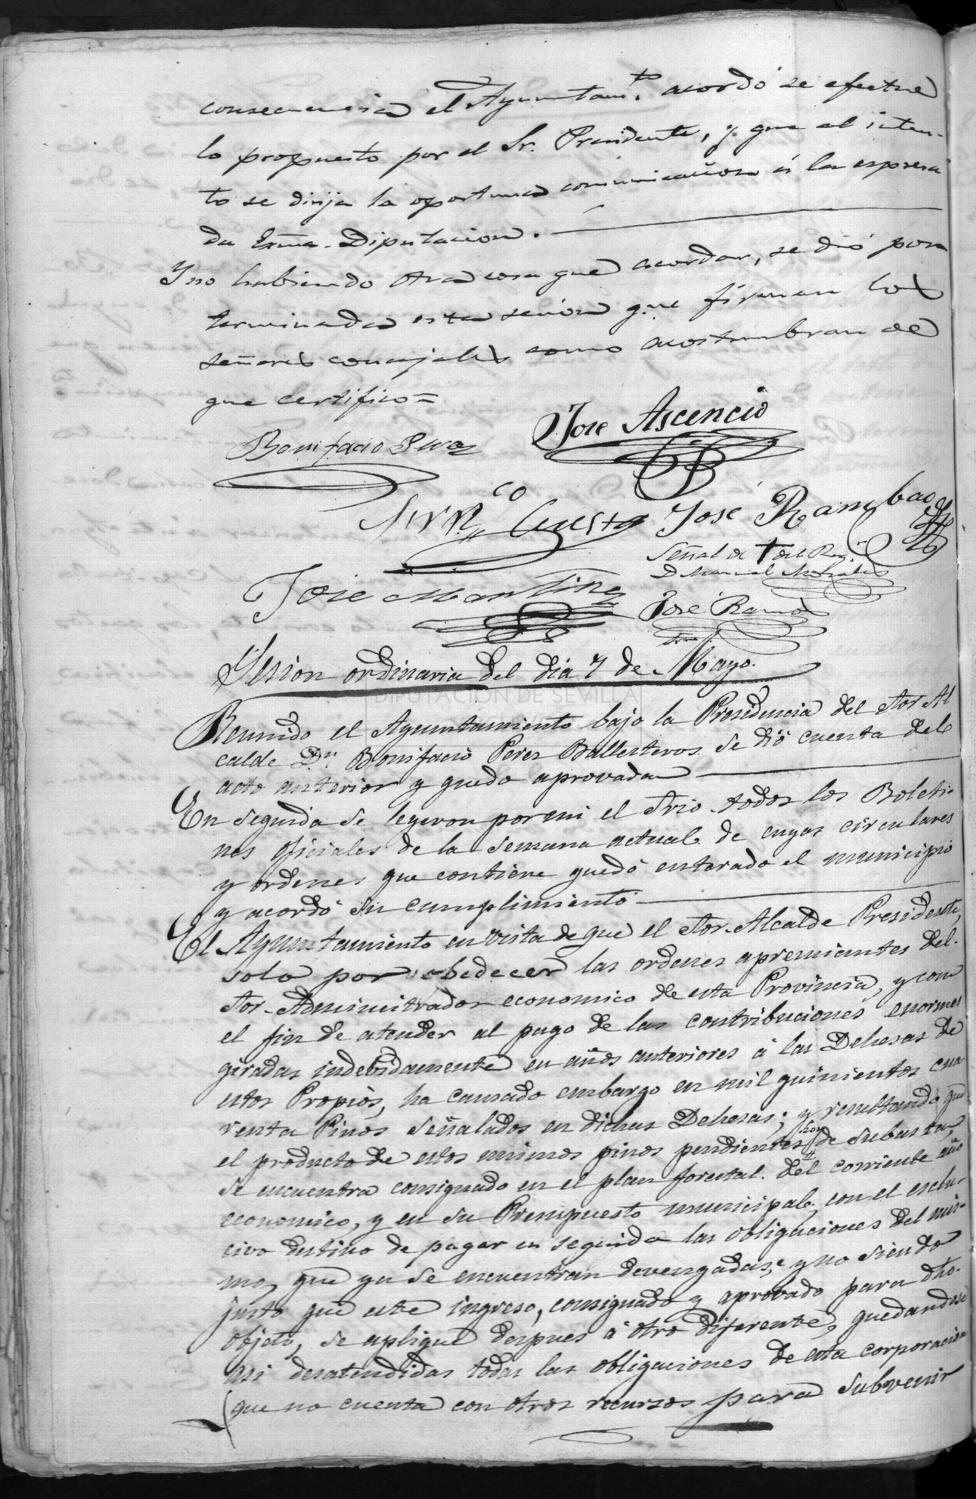 consecuencia el Ayuntam.to acordó se efectue
lo propuesto por el Sr. Presidente, y que al inten-
to se dirija la oportuna comunicacion á la espresa
da Exma. Diputacion.
Y no habiendo otra cosa que acordar, se dió por
terminada esta sesion que firman los
señores concejales como acostumbran de
que certifico=
Bonifacio Perez
José Ascencio
Cuesta José Ram
Señal de + del Reg
D Manuel
José Martinez
José Ramos
Sesion ordinaria del dia 7 de Mayo.
DIPUTACIÓN DE SEVILLA
Reunido el Ayuntamiento bajo la Presidencia del Sor Al
calde Dn Bonifacio Perez Ballesteros se dió cuenta del
acto anterior y quedo aprovada
En seguida se leyeron por mi el Srio. todos los Boleti-
nes oficiales de la semana actual de cuyas circulares
y ordenes que contiene quedó enterado el municipio
y acordó su cumplimiento
El Ayuntamiento en vista de que el Sor. Alcalde Presidente,
solo por obedecer las ordenes apremiantes del
Sor. Administrador economico de esta Provincia, y con
el fin de atender al pago de las contribuciones enormes
giradas indebidamente en años anteriores á las Dehesas de
estos Propios, ha causado embargo en mil quinientos cua
renta Pinos señalados en dichas Dehesas; y resultando que
el producto de estos mismos pinos pendientes hoy de subasta,
se encuentra consignado en el plan forestal del corriente año
economico, y en su Presupuesto municipal, con el esclu-
sivo destino de pagar en seguida las obligaciones del mis-
mo, que ya se encuentran devengadas, y no siendo
justo que este ingreso, consignado y aprobado para dho.
objeto, se aplique despues á otro diferente, quedandose
asi desatendidas todas las obligaciones de esta corporacion
(que no cuenta con otros recursos para subvenir